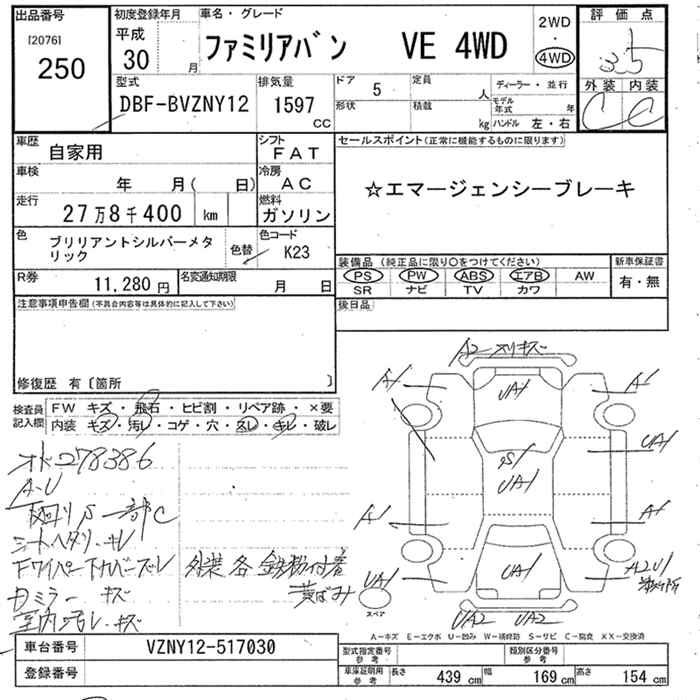 出品番号
[2076]
250
初度登録年月
平成
30
月
車名・グレード
ファミリアバン VE 4WD
2WD
4WD
評価点
3.5
外装 内装
C C
型式
DBF-BVZNY12
排気量
1597
cc
ドア
5
形状
定員
人
積載
kg
ディーラー・並行
モデル年式
年
ハンドル 左・右
車歴
自家用
シフト
FAT
車検
年 月( 日)
冷房
AC
走行
27万8千400 km
燃料
ガソリン
色
ブリリアントシルバーメタリック
色替
色コード
K23
R券
11,280 円
名変通知期限
月 日
セールスポイント(正常に機能するものに限ります)
☆エマージェンシーブレーキ
装備品 (純正品に限り○をつけてください)
PS PW ABS エアB AW
SR ナビ TV カワ
新車保証書
有・無
後日品
注意事項申告欄(不具合内容等は具体的に記入して下さい)
修復歴 有〔箇所 〕
検査員記入欄
FW キズ・飛石・ヒビ割・リペア跡・×要
内装 キズ・汚レ・コゲ・穴・スレ・キレ・破レ
278386
A-U
シートヘタリ・キレ
ミラー キズ
室内汚レ・キズ
外装各鉄粉付着
黄ばみ
A2 スリキズ
A1
UA1
A1
UA1
A1
A1
UA1
A2U1
UA1
UA1
スペア
UA2 UA2
A-キズ E-エクボ U-凹み W-補修跡 S-サビ C-腐食 XX-交換済
車台番号
VZNY12-517030
登録番号
型式指定番号
参考
類別区分番号
参考
車庫証明用
参考
長さ 439 cm
幅 169 cm
高さ 154 cm